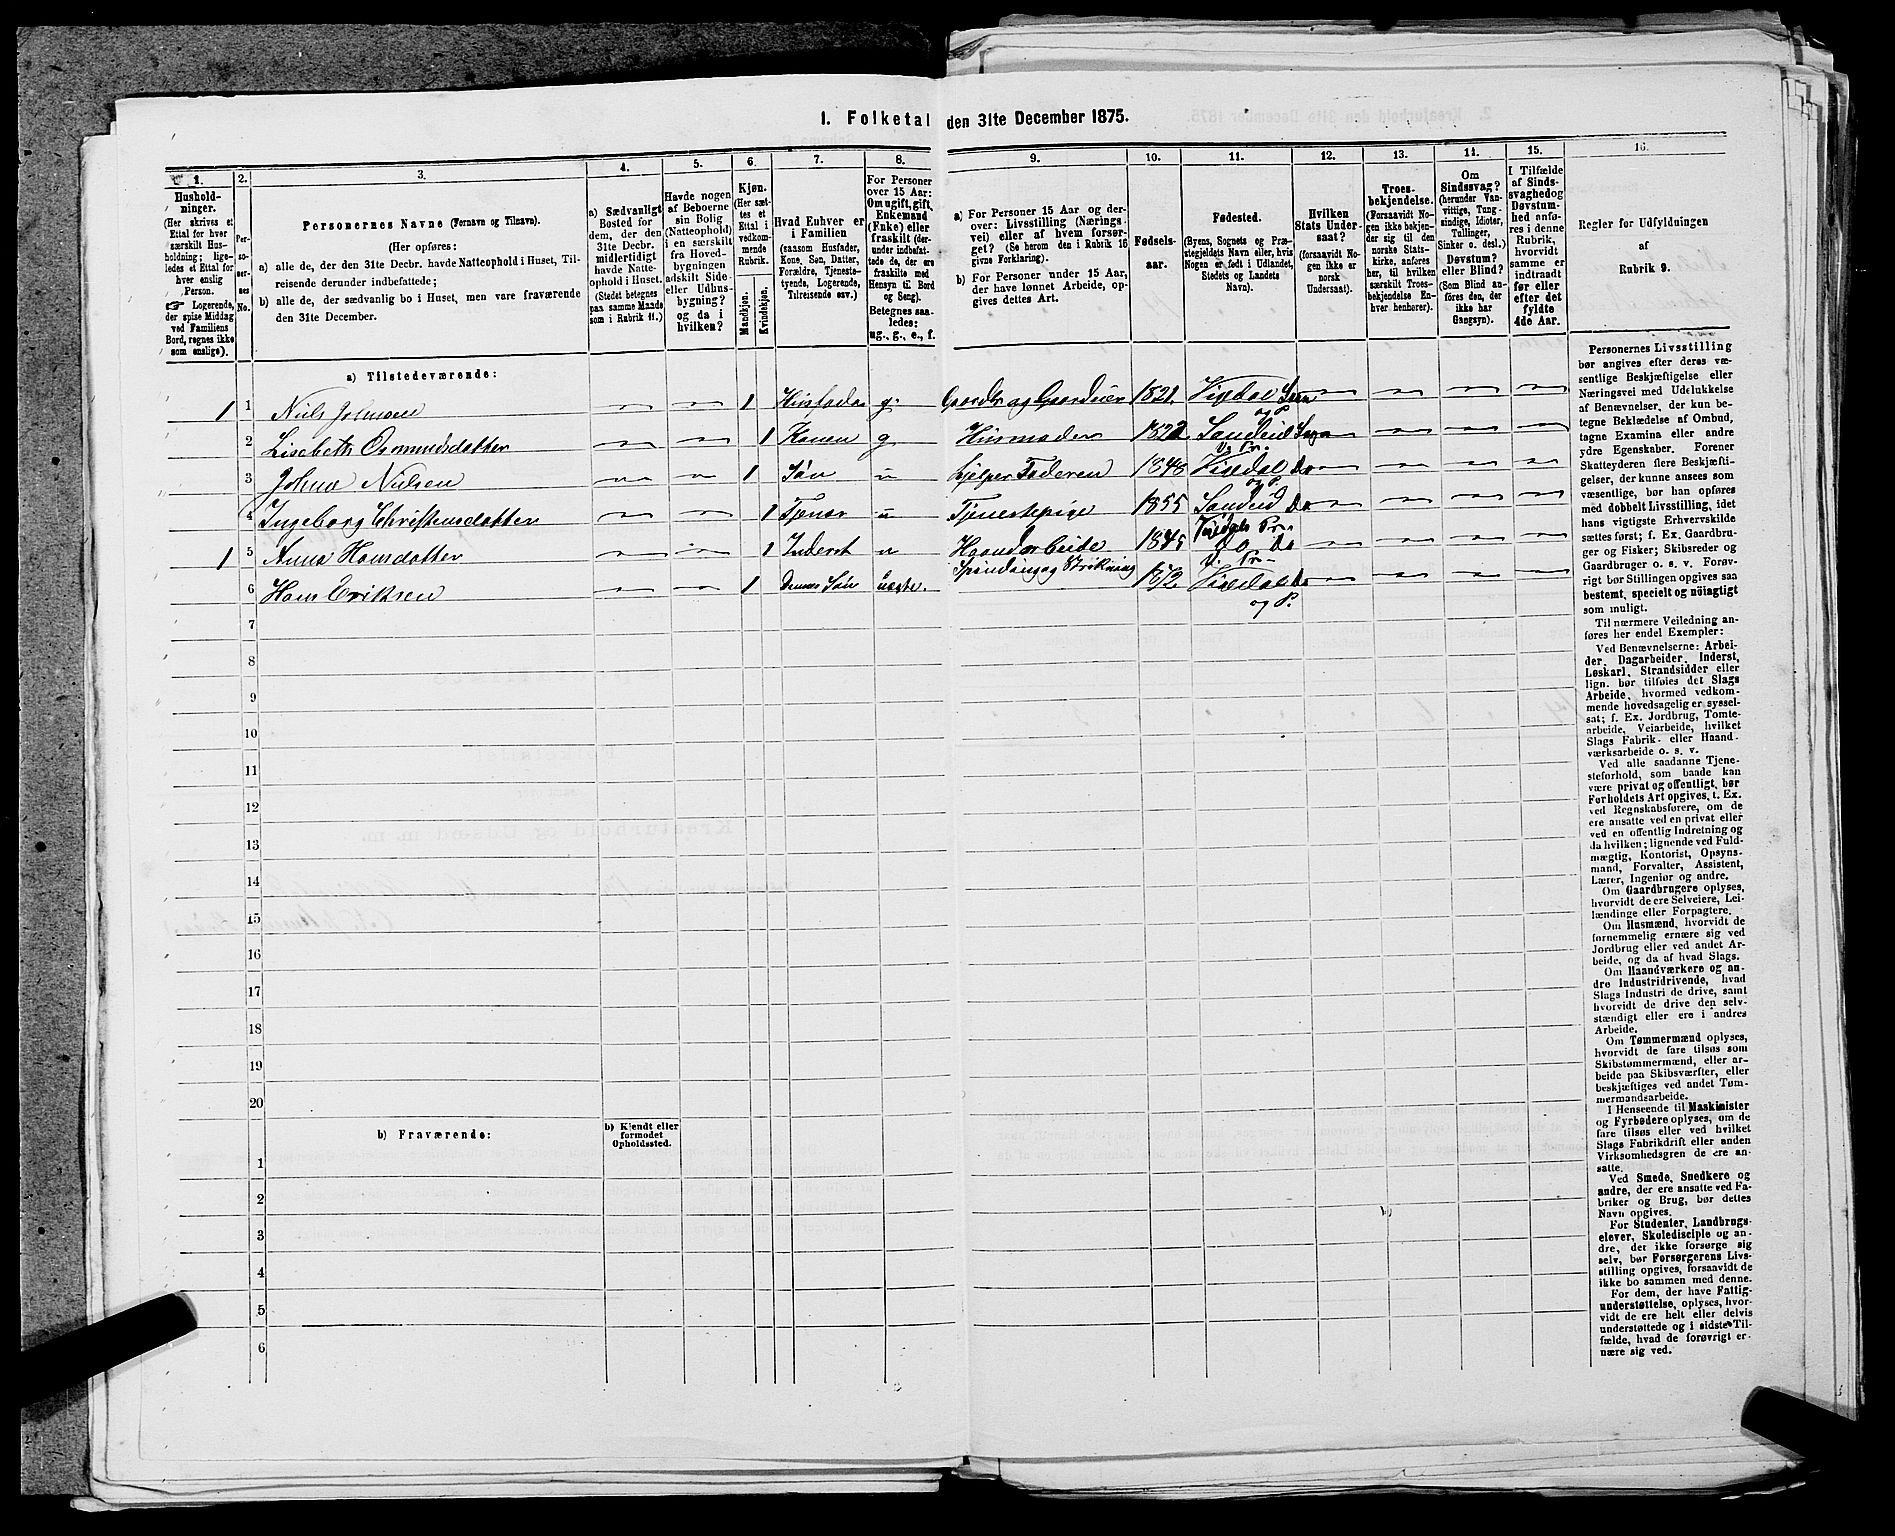 1. Folketal den 31te December 1875.
1. 2. 3. 4. 5. 6. 7. 8. 9. 10. 11. 12. 13. 14. 15. 16.
Hushold-
ninger.
(Her skrives et
Ettal for hver
særskilt Hus-
holdning; lige-
ledes et Ettal for
hver enslig
Person.
☞ Logerende,
der spise Middag
ved Familiens
Bord, regnes ikke
som enslige).
Per-
so-
ner-
nes
No.
Personernes Navne (Fornavn og Tilnavn).
(Her opføres:
a) alle de, der den 31te Decbr. havde Natteophold i Huset, Til-
reisende derunder indbefattede;
b) alle de, der sædvanlig bo i Huset, men vare fraværende
den 31te December.
a) Sædvanligt
Bosted for
dem, der den
31te Decbr.
midlertidigt
havde Natte-
ophold i Huset.
(Stedet betegnes
paa samme Maade
som i Rubrik 11.)
Havde nogen
af Beboerne
sin Bolig
(Natteophold)
i en særskilt
fra Hoved-
bygningen
adskilt Side-
eller Udhus-
bygning?
og da i
hvilken?
Kjøn.
(Her sæt-
tes et
Ettal i
vedkom-
mende
Rubrik.
Mandkjøn.
Kvindekjøn.
Hvad Enhver er
i Familien
(saasom Husfader,
Kone, Søn, Datter,
Forældre, Tjeneste-
tyende, Logerende,
Tilreisende osv.)
For Personer
over 15 Aar:
Om ugift, gift,
Enkemand
(Enke) eller
fraskilt (der-
under indbefat-
tede de, der ere
fraskilte med
Hensyn til Bord
og Seng).
Betegnes saa-
ledes:
ug., g., e., f.
a) For Personer 15 Aar og der-
over: Livsstilling (Nærings-
vei) eller af hvem forsør-
get? (Se herom den i Rubrik 16
givne Forklaring).
b) For Personer under 15 Aar,
der have lønnet Arbeide, op-
gives dettes Art.
Fødsels-
aar.
Fødested.
(Byens, Sognets og Præ-
stegjeldets Navn eller, hvis
Nogen er født i Udlandet,
Stedets og Landets
Navn).
Hvilken
Stats Under-
saat?
(forsaavidt No-
gen ikke er
norsk
Undersaat).
Troes-
bekjendelse.
(Forsaavidt No-
gen ikke bekjen-
der sig til den
norske Stats-
kirke, anføres
her, til hvilken
særskilt Troes-
bekjendelse En-
hver henhører).
Om
Sindssvag?
(herunder Van-
vittige, Tung-
sindige, Idioter,
Tullinger,
Sinker o. desl.)
Døvstum?
eller Blind?
(Som Blind an-
føres den, der
ikke har
Gangsyn).
I Tilfælde
af Sinds-
svaghed og
Døvstum-
hed anfø-
res i denne
Rubrik,
hvorvidt
samme er
indtraadt
før eller
efter det
fyldte
4de Aar.
Regler for Udfyldningen
af
Rubrik 9.
a) Tilstedeværende:
1 1 Niels Johnsen 1 Husfader g. Gaardbr og Gaardeier 1821. Vigedal Sogn og P.
2 Lisebeth Osmundsdatter 1 Konen g. Husmoder 1822 Sandeid Sogn V. Pr.
3 Johne Nielsen 1 Søn u Hjelper Faderen 1848 Vigedal Do og P.
4 Ingeborg Christensdatter 1 Tjener u Tjenestepige 1855 Sandeid Do Vigdals Pr.
1 5 Anna Hansdatter 1 Inderst u Haandarbeide 1845 Do Do V. Pr.
Spinding og Strikning
6 Hans Eriksen 1 Dennes Søn uægte. 1872. Vigedal Do
og P.
7
8
9
10
11
12
13
14
15
16
17
18
19
20
b) Fraværende:
b) Kjendt eller
formodet
Opholdssted.
1
2
3
4
5
6
Personernes Livsstilling
bør angives efter deres væ-
sentlige Beskjæftigelse eller
Næringsvei med Udelukkelse
af Benævnelser, der kun be-
tegne Beklædelse af Ombud,
tagne Examina eller andre
ydre Egenskaber. Forener
Skatteyderen flere Beskjæfti-
gelser, der kunne ansees som
væsentlige, bør han opføres
med dobbelt Livsstilling, idet
hans vigtigste Erhvervskilde
sættes først; f. Ex. Gaardbru-
ger og Fisker; Skibsreder og
Gaardbruger o. s. v. Forøv-
rigt bør Stillingen opgives saa
bestemt, specielt og nöiagtigt
som muligt.
Til nærmere Veiledning an-
føres her endel Exempler:
Ved Benævnelserne: Arbei-
der, Dagarbeider, Inderst,
Løskarl, Strandsidder eller
lign. bør tilføies det Slags
Arbeide, hvormed vedkom-
mende hovedsagelig er syssel-
sat; f. Ex. Jordbrug, Tomte-
arbeide, Veiarbeide, hvilket
Slags Fabrik- eller Haand-
værksarbeide o. s. v.
Ved alle saadanne Tjene-
steforhold, som baade kan
være privat og offentligt, bør
Forholdets Art opgives, t. Ex.
ved Regnskabsførere, om de
ere ansatte ved en privat eller
ved en offentlig Indretning og
da hvilken; lignende ved Fuld-
mægtig, Kontorist, Opsyns-
mand, Forvalter, Assistent,
Lærer, Ingeniør og andre.
Om Gaardbrugere oplyses,
hvorvidt de ere Selveiere, Lei-
lændinge eller Forpagtere.
Om Husmænd, hvorvidt de
fornemmelig ernære sig ved
Jordbrug eller ved andet Ar-
beide, og da af hvad Slags.
Om Haandværkere og an-
dre Industridrivende, hvad
Slags Industri de drive, samt
hvorvidt de drive den selv-
stændigt eller ere i andres
Arbeide.
Om Tømmermænd oplyses,
hvorvidt de fare tilsøs som
Skibstømmermænd, eller ar-
beide paa Skibsværfter, eller
beskjæftiges ved andet Tøm-
mermandsarbeide.
I Henseende til Maskinister
og Fyrbødere oplyses, om de
fare tilsøs eller ved hvilket
Slags Fabrikdrift eller anden
Virksomhedsgren de ere an-
satte.
Ved Smede, Snedkere og
andre, der ere ansatte ved Fa-
briker og Brug, bør dettes
Navn opgives.
For Studenter, Landbrugs-
elever, Skoledisciple og an-
dre, der ikke forsørge sig
selv, bør Forsørgerens Livs-
stilling opgives, forsaavidt de
ikke bo sammen med denne.
For dem, der have Fattig-
understøttelse, oplyses, hvor-
vidt de ere helt eller delvis
understøttede og i sidste Til-
fælde, hvad de forøvrigt er-
nære sig ved.